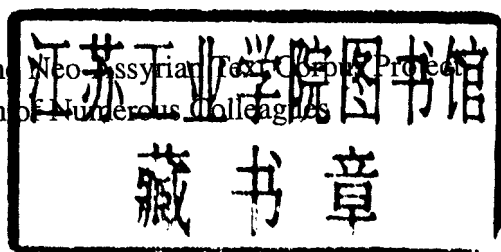 江苏工业学院图书馆
Neo-Assyrian Text Corpus Project
of Numerous Colleagues
藏书章